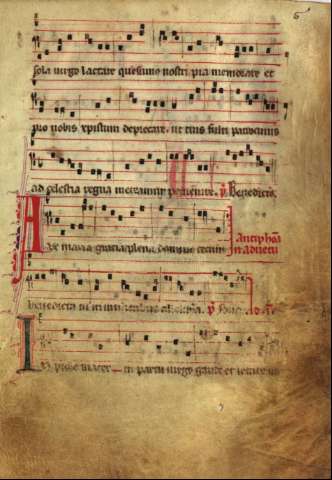 sola uirgo lactare quesumus nostri pia memorare et
pro nobis xpistum deprecare. ut tuis fulti patrocinus
ad celestia regna mereamur peruenire. Benedictio.
Aue maria gratia plena dominus tecum
Antiphona
in aduentu
benedicta tu in mulieribus alleluia.
mater in partu uirgo gaude et letare